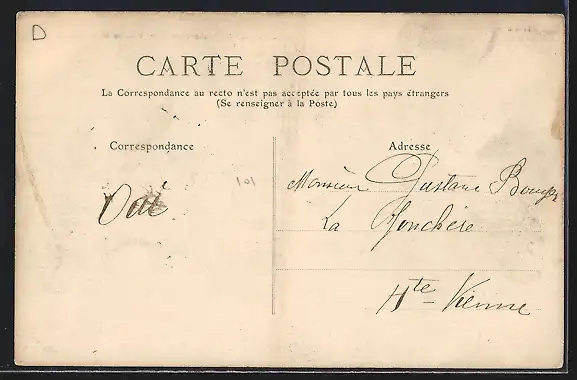 D
CARTE POSTALE
La Correspondance au recto n'est pas acceptée par tous les pays étrangers
(Se renseigner à la Poste)
Correspondance
Adresse
101
Monsieur Gustave
La Jonchère
Hte Vienne